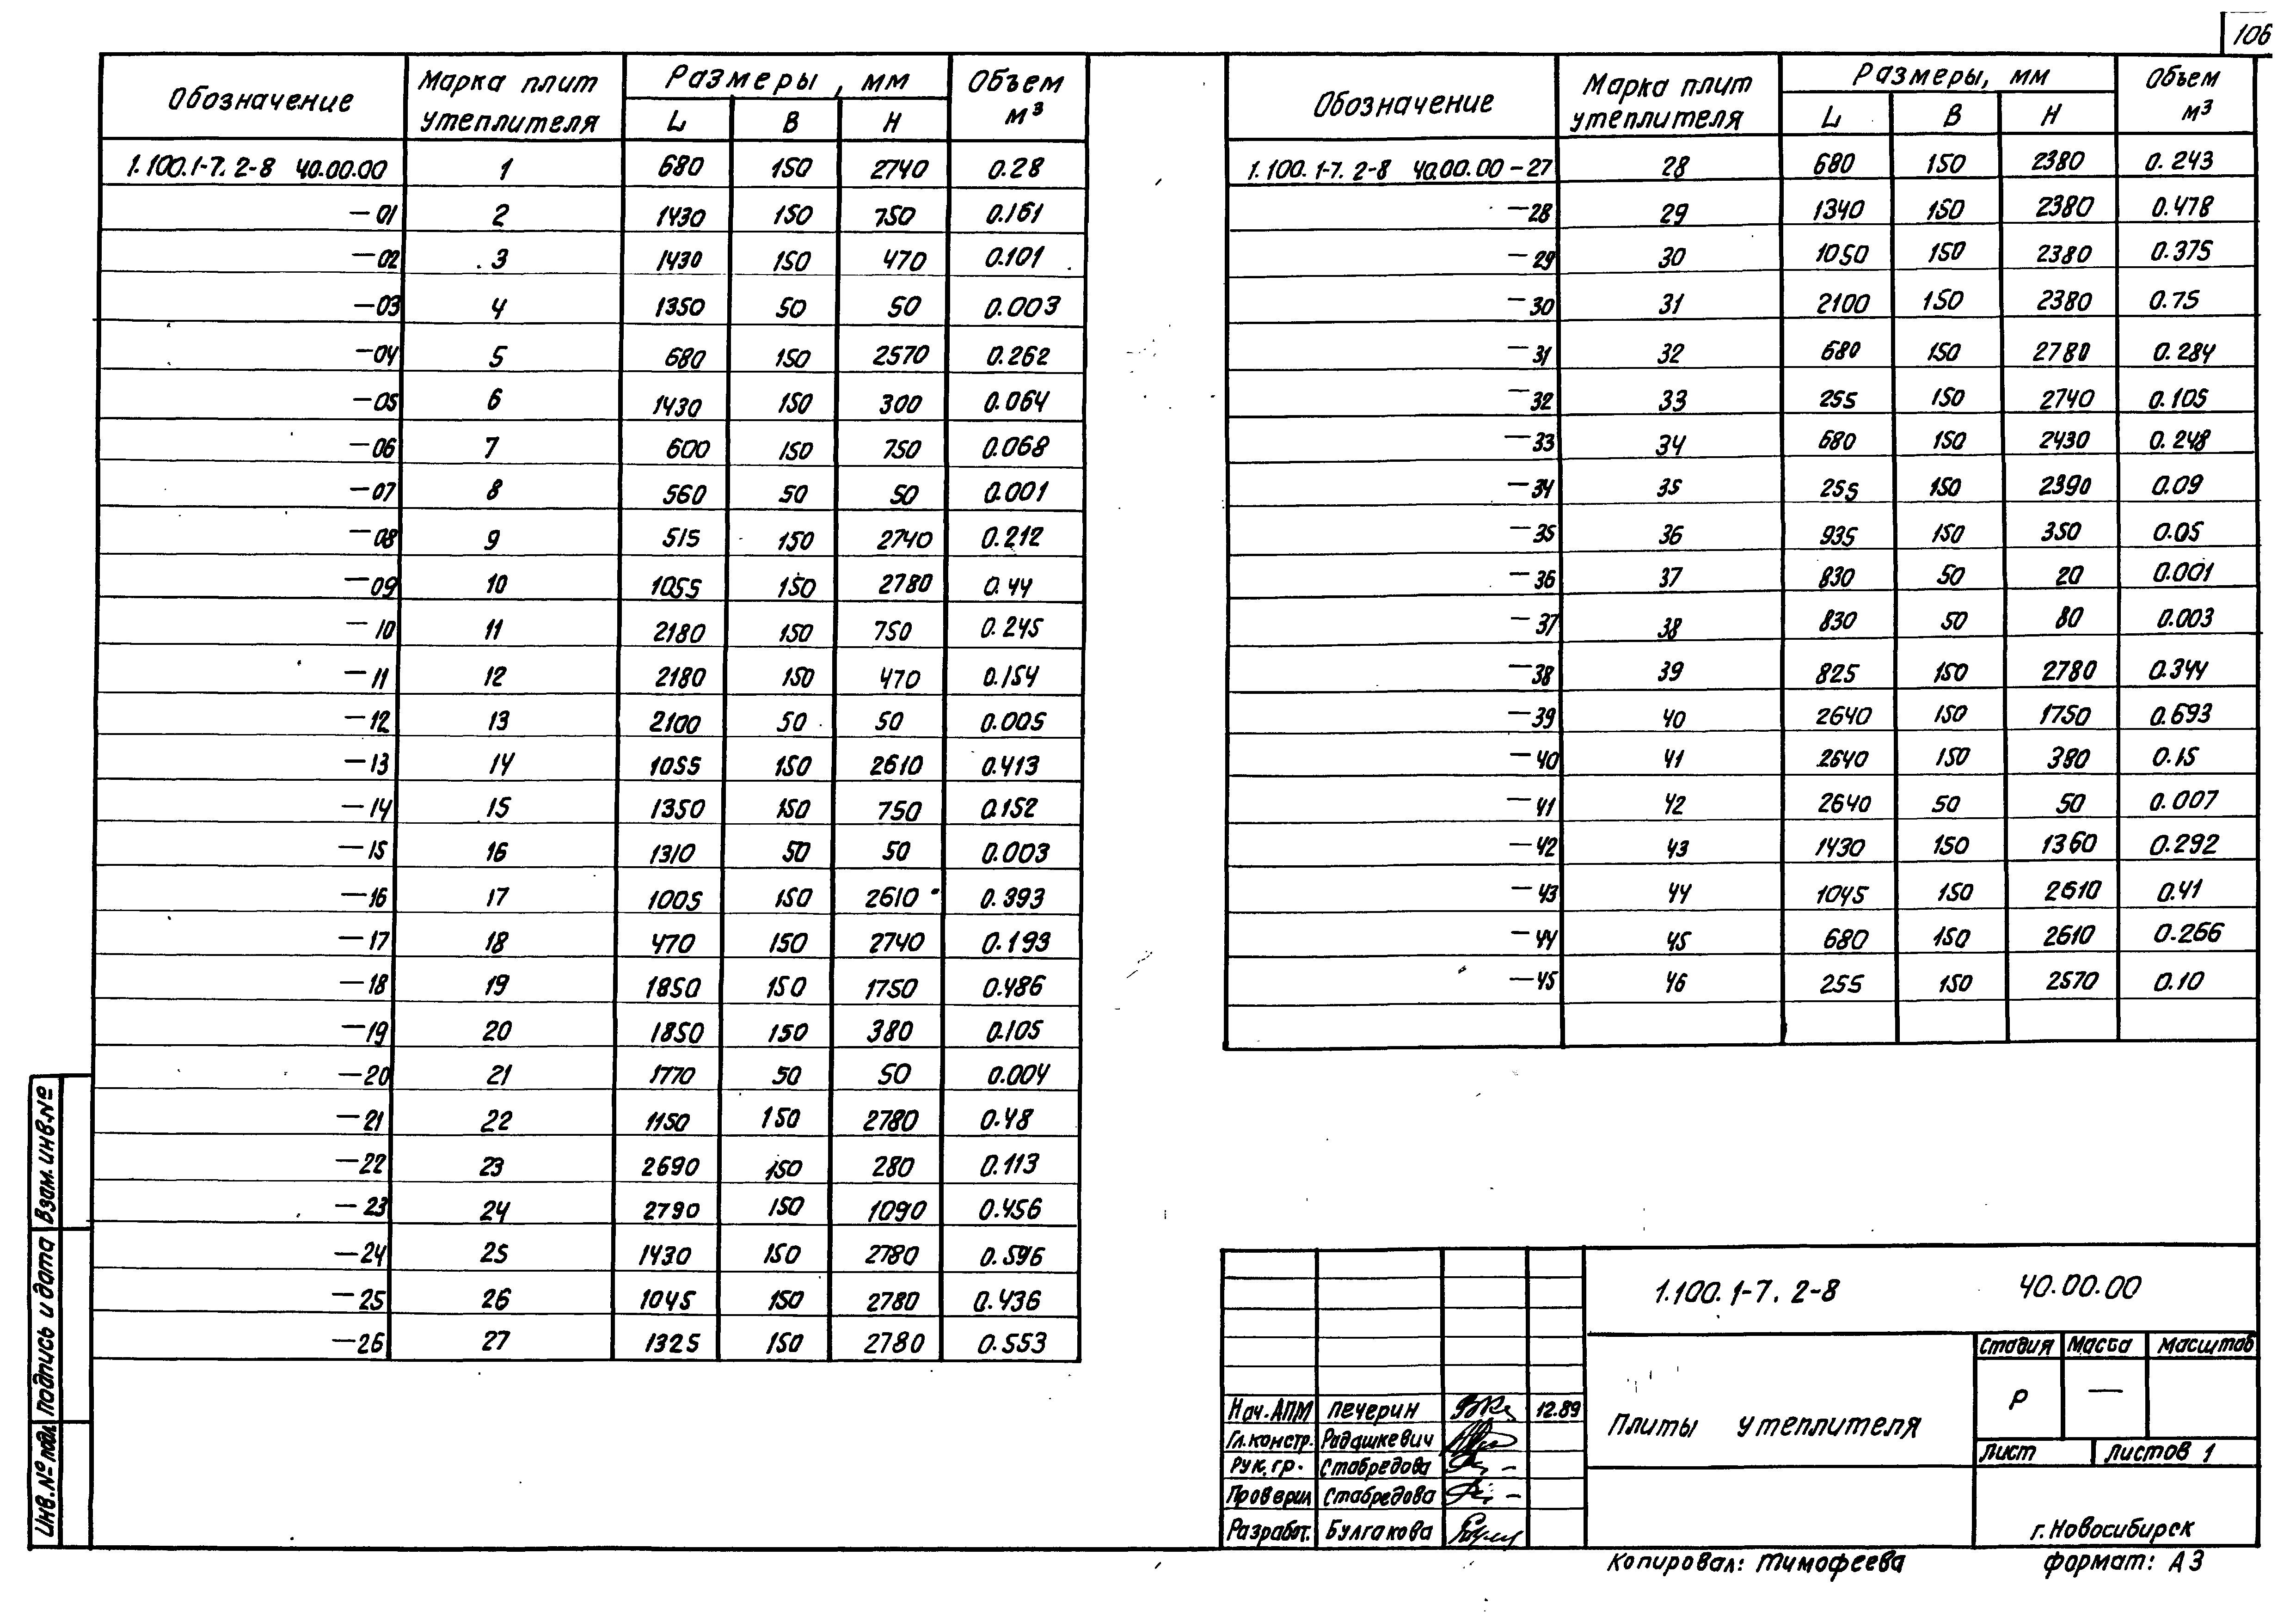 106
Обозначение Марка плит утеплителя Размеры, мм Объем м³
L B H
1.100.1-7. 2-8 40.00.00 1 680 150 2740 0.28
-01 2 1430 150 750 0.161
-02 3 1430 150 470 0.101
-03 4 1350 50 50 0.003
-04 5 680 150 2570 0.262
-05 6 1430 150 300 0.064
-06 7 600 150 750 0.068
-07 8 560 50 50 0.001
-08 9 515 150 2740 0.212
-09 10 1055 150 2780 0.44
-10 11 2180 150 750 0.245
-11 12 2180 150 470 0.154
-12 13 2100 50 50 0.005
-13 14 1055 150 2610 0.413
-14 15 1350 150 750 0.152
-15 16 1310 50 50 0.003
-16 17 1005 150 2610 0.393
-17 18 470 150 2740 0.193
-18 19 1850 150 1750 0.486
-19 20 1850 150 380 0.105
-20 21 1770 50 50 0.004
-21 22 1150 150 2780 0.48
-22 23 2690 150 280 0.113
-23 24 2790 150 1090 0.456
-24 25 1430 150 2780 0.596
-25 26 1045 150 2780 0.436
-26 27 1325 150 2780 0.553
Обозначение Марка плит утеплителя Размеры, мм Объем м³
L B H
1.100.1-7. 2-8 40.00.00-27 28 680 150 2380 0.243
-28 29 1340 150 2380 0.478
-29 30 1050 150 2380 0.375
-30 31 2100 150 2380 0.75
-31 32 680 150 2780 0.284
-32 33 255 150 2740 0.105
-33 34 680 150 2430 0.248
-34 35 255 150 2390 0.09
-35 36 935 150 350 0.05
-36 37 830 50 20 0.001
-37 38 830 50 80 0.003
-38 39 825 150 2780 0.344
-39 40 2640 150 1750 0.693
-40 41 2640 150 380 0.15
-41 42 2640 50 50 0.007
-42 43 1430 150 1360 0.292
-43 44 1045 150 2610 0.41
-44 45 680 150 2610 0.266
-45 46 255 150 2570 0.10
Взам. инв.№
Подпись и дата
Инв.№ подл.
1.100.1-7. 2-8 40.00.00
Стадия Масса Масштаб
Р —
Плиты утеплителя
Лист Листов 1
Нач. АПМ Печерин 12.89
Гл. констр. Радашкевич
Рук. гр. Стабредова
Проверил Стабредова
Разработ. Булгакова
г. Новосибирск
Копировал: Тимофеева формат: А3